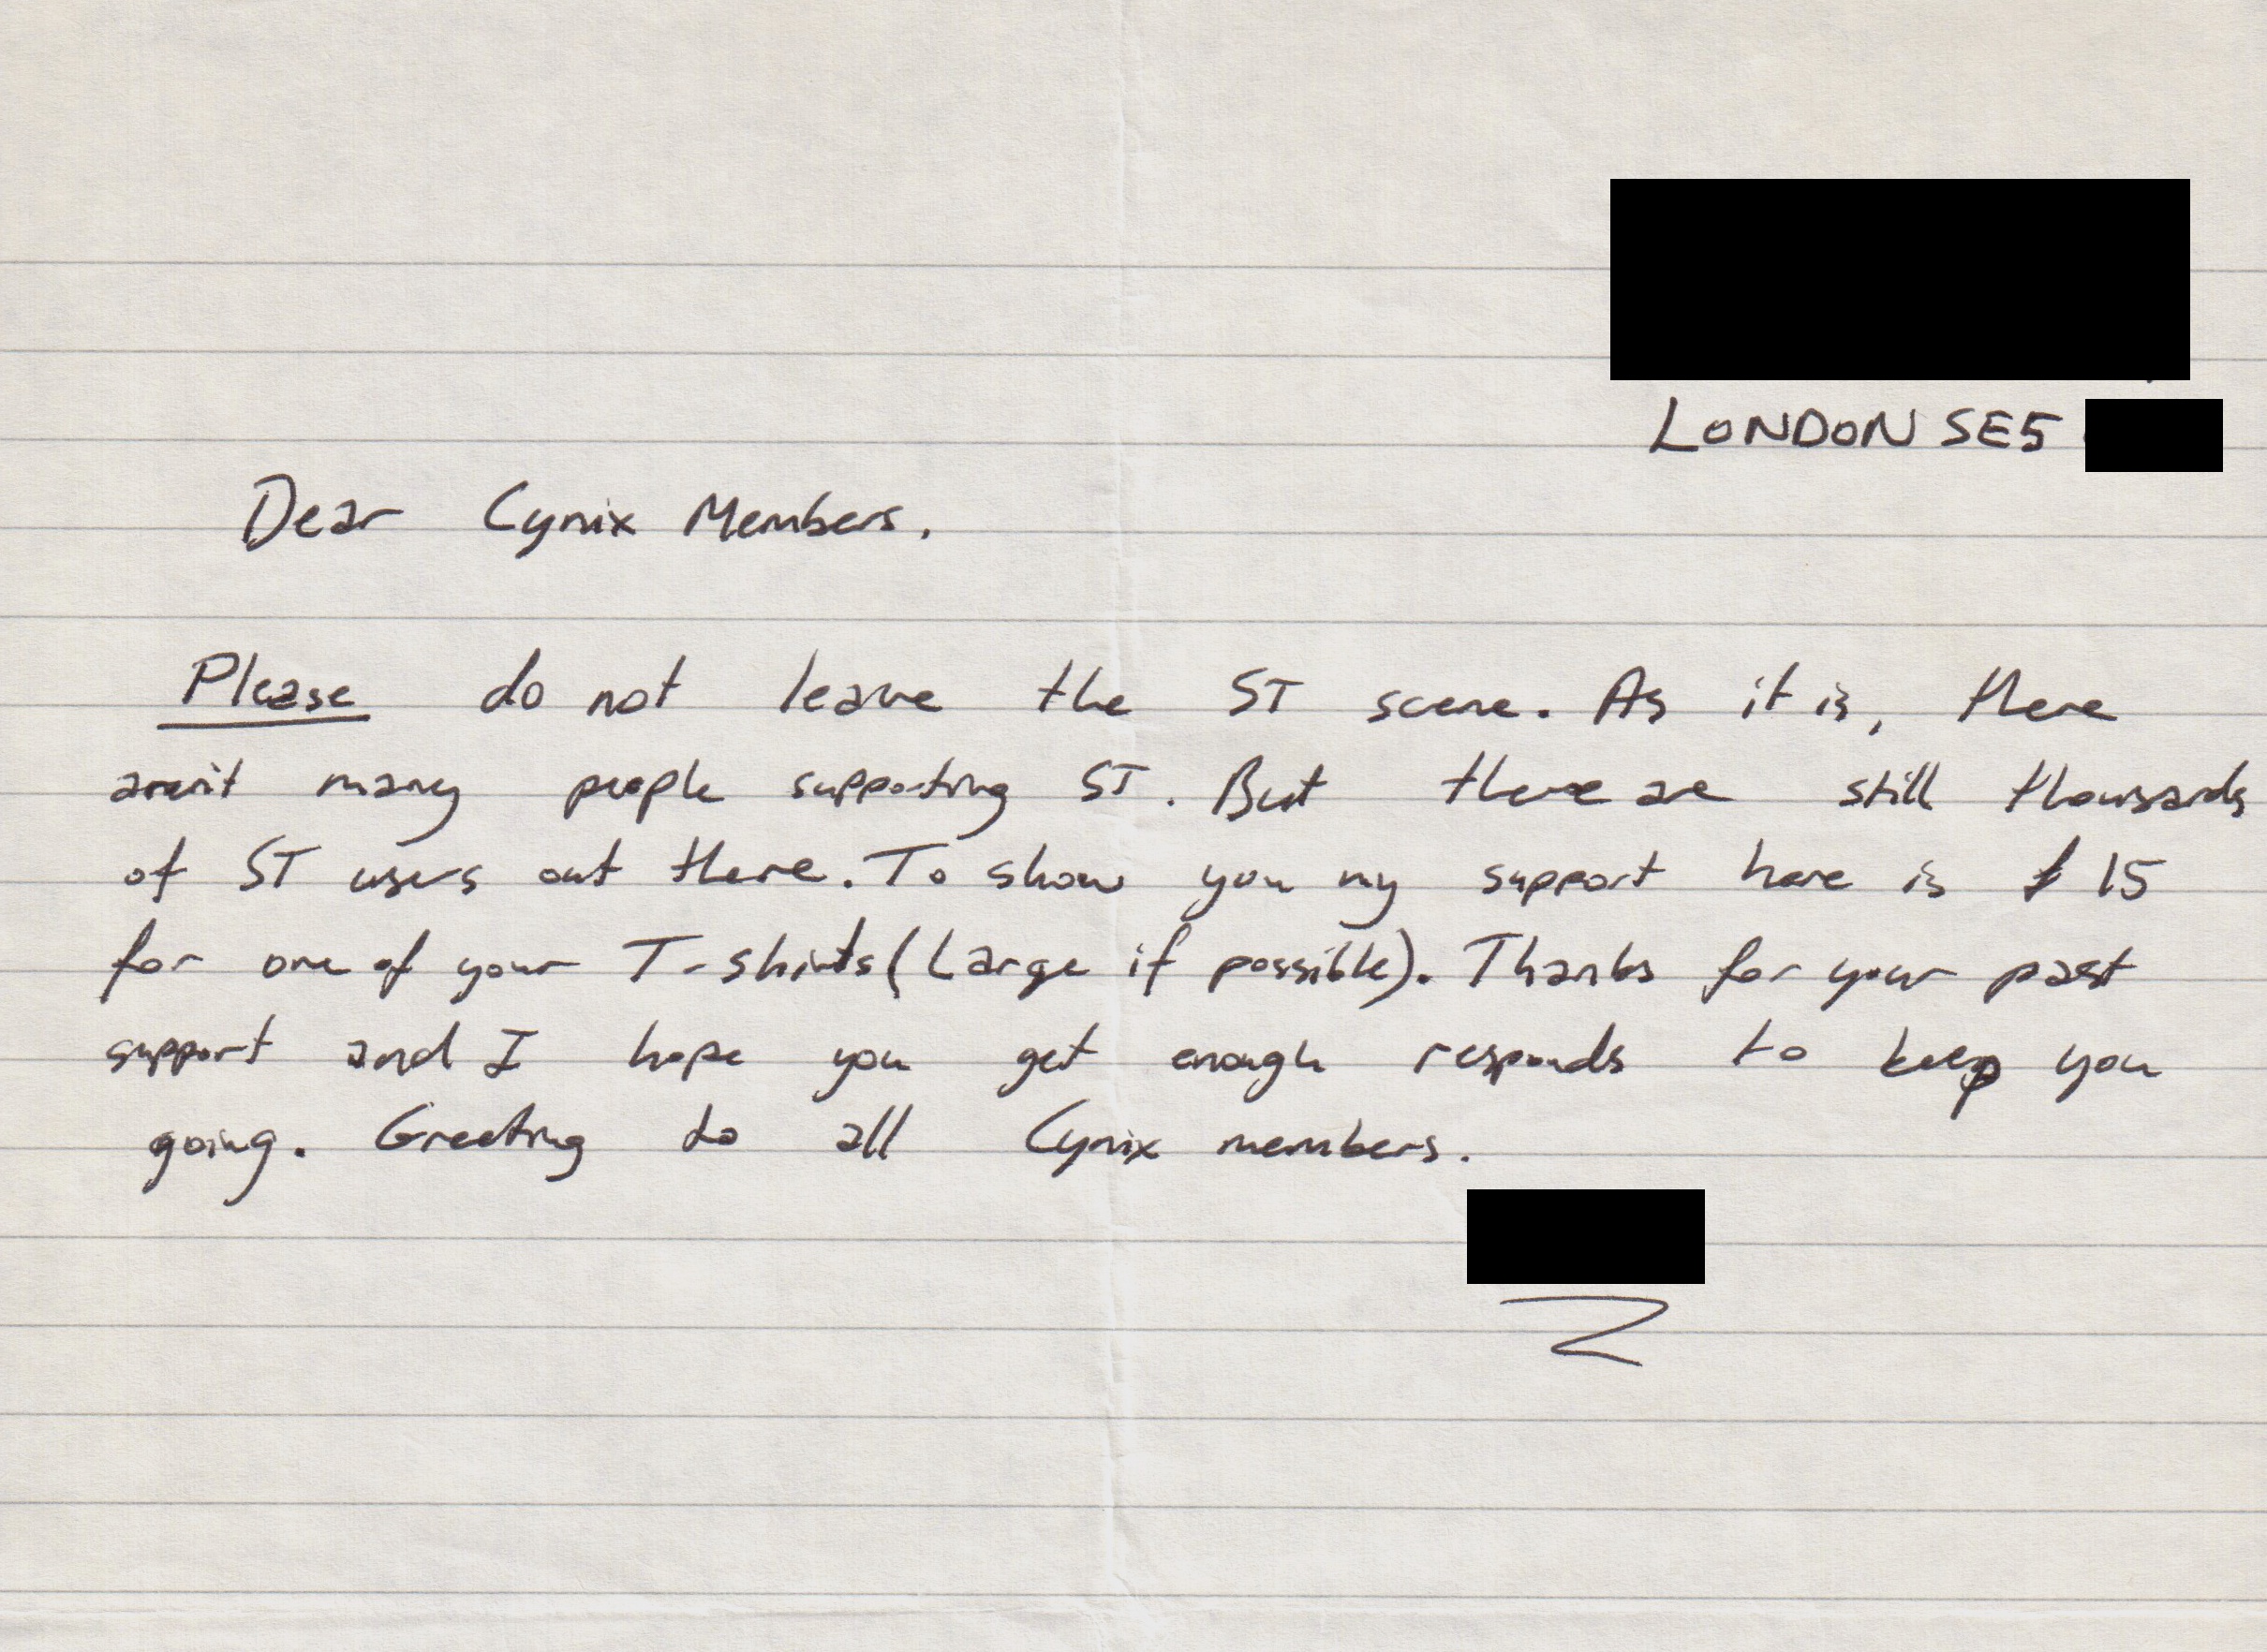 LONDON SE5
Dear Cynix Members.
Please do not leave the ST scene. As it is, there
aren't many people supporting ST. But there are still thousands
of ST users out there. To show you my support here is £15
for one of your T-shirts (Large if possible). Thanks for your past
support and I hope you get enough responds to keep you
going. Greeting to all Cynix members.